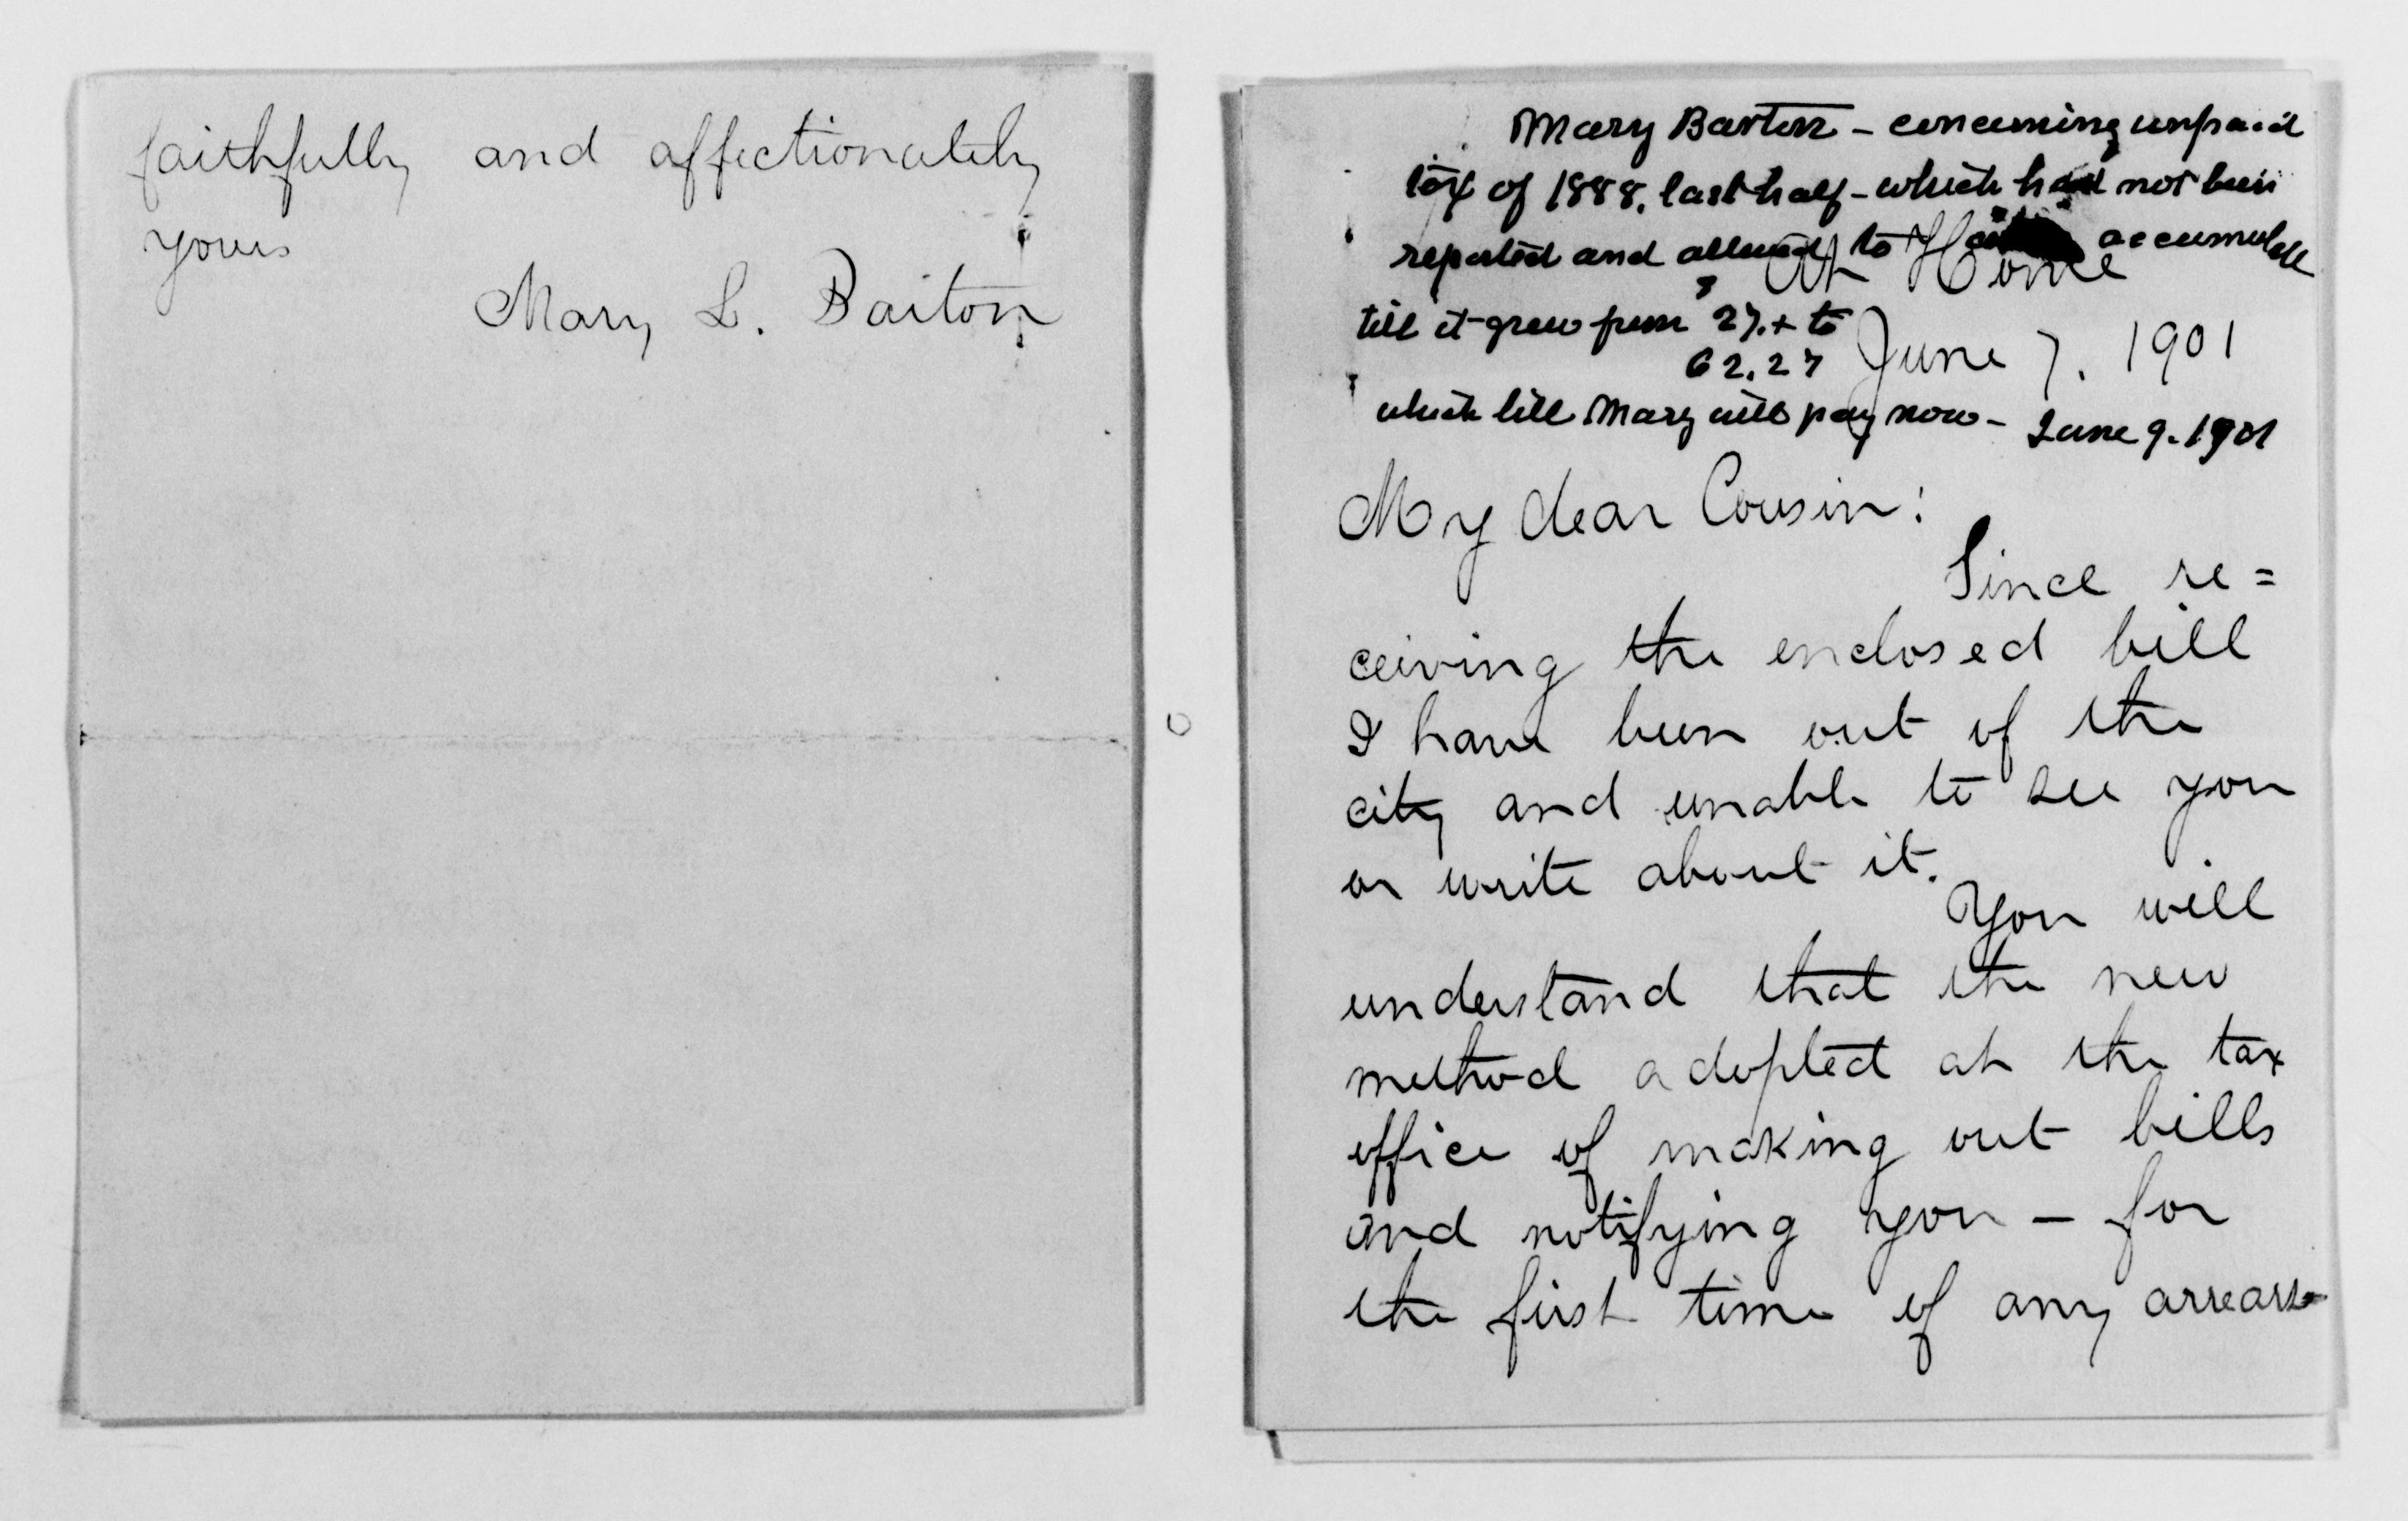 faithfully and affectionately
yours
Mary L. Barton
Mary Barton - concerning unpaid
tax of 1888, last half - which had not been
reported and allowed to accumulate
till it grew from 27.+ to
62.27
which bill Mary will pay now - June 9. 1901
At Home
June 7. 1901
My dear Cousin:
Since re=
ceiving the enclosed bill
I have been out of the
city and unable to see you
or write about it.
You will
understand that the new
method adopted at the tax
office of making out bills
and notifying you - for
the first time of any arrears